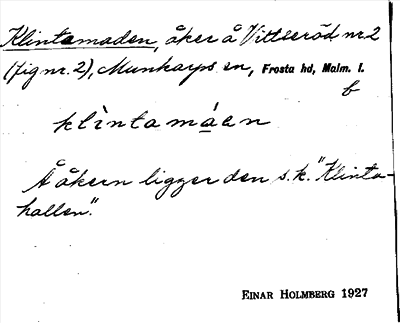 Klintamaden, åker å Vittseröd nr 2
(fig nr. 2), Munkarps sn, Frosta hd, Malm. l.
b
klìntamáen
Å åkern ligger den s.k. "Klinta-
hallen".
EINAR HOLMBERG 1927